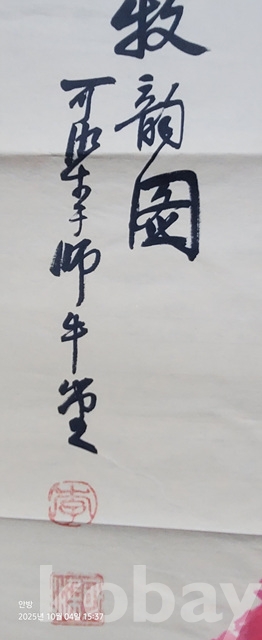 牧韵圖
可染于师牛堂
李
안방
2025년 10월 04일 15:37
kobay